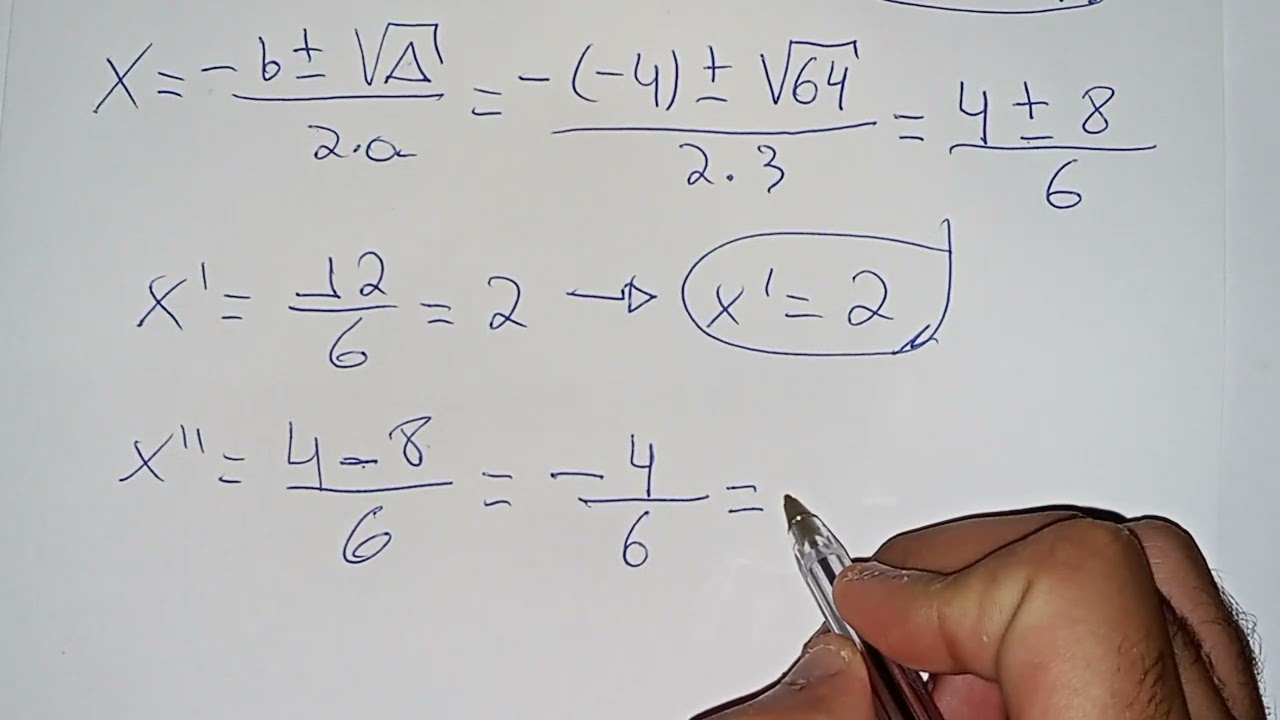 X = -b ± √Δ / 2.a = -(-4) ± √64 / 2.3 = 4 ± 8 / 6
x' = 12/6 = 2 → x' = 2
x'' = 4-8/6 = -4/6 =